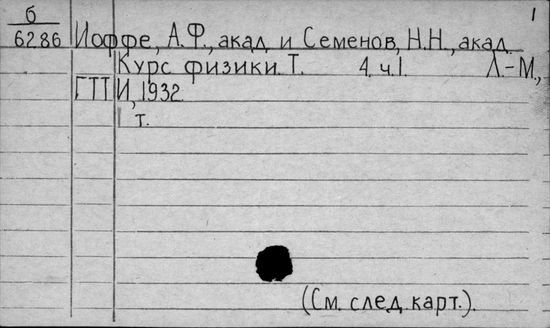 б 1
6286 Иоффе, А.Ф., акад. и Семенов, Н.Н., акад.
Курс физики. Т. 4, ч.1. Л.-М.,
ГТТИ, 1932.
т.
(См. след. карт.).